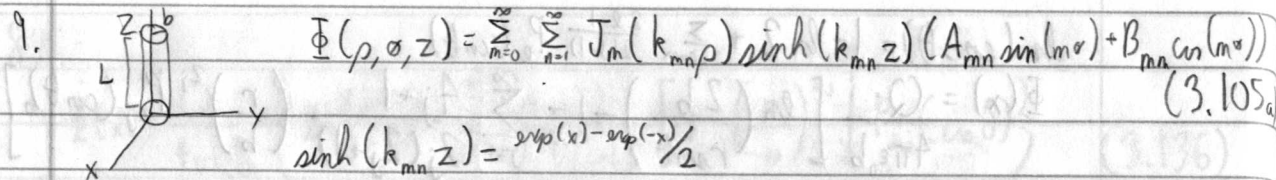 9.
Z b
L
Y
X
Φ(ρ,α,z) = ∞Σm=0 ∞Σn=1 Jm(kmnρ) sinh(kmn z)(Amn sin(mα) + Bmn cos(mα))
(3.105a
sinh(kmn z) = exp(x) - exp(-x)/2